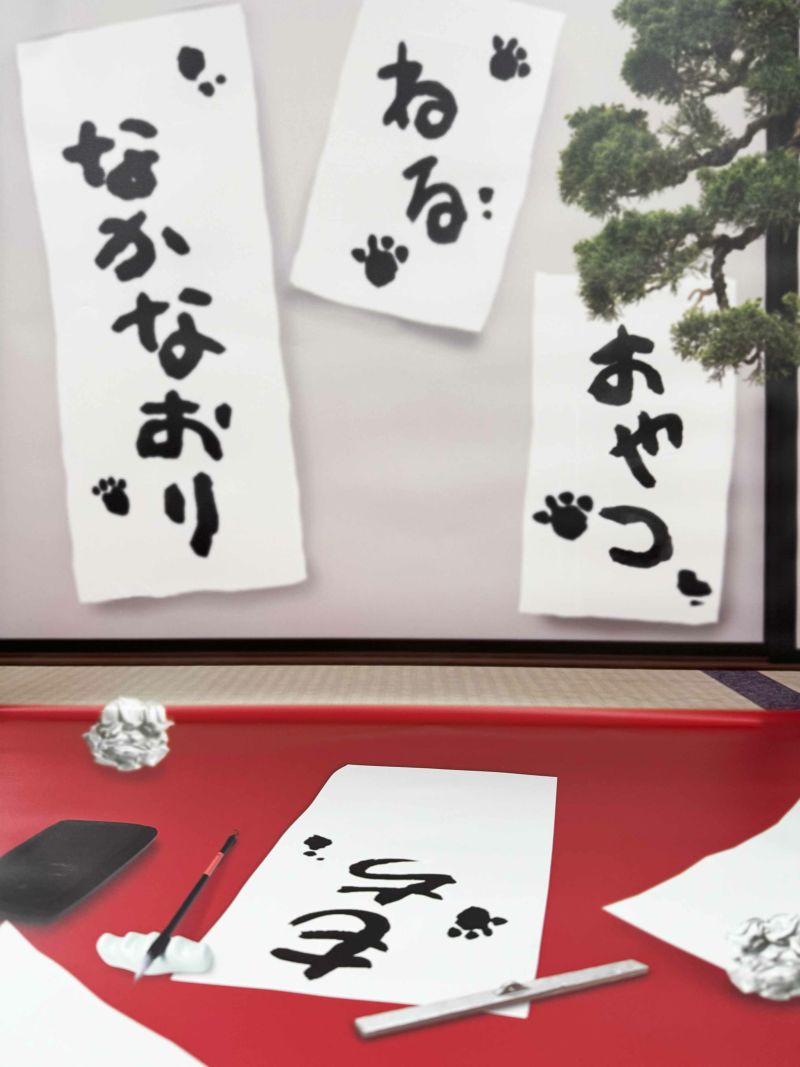 なかなおり
ねる
おやつ
もち